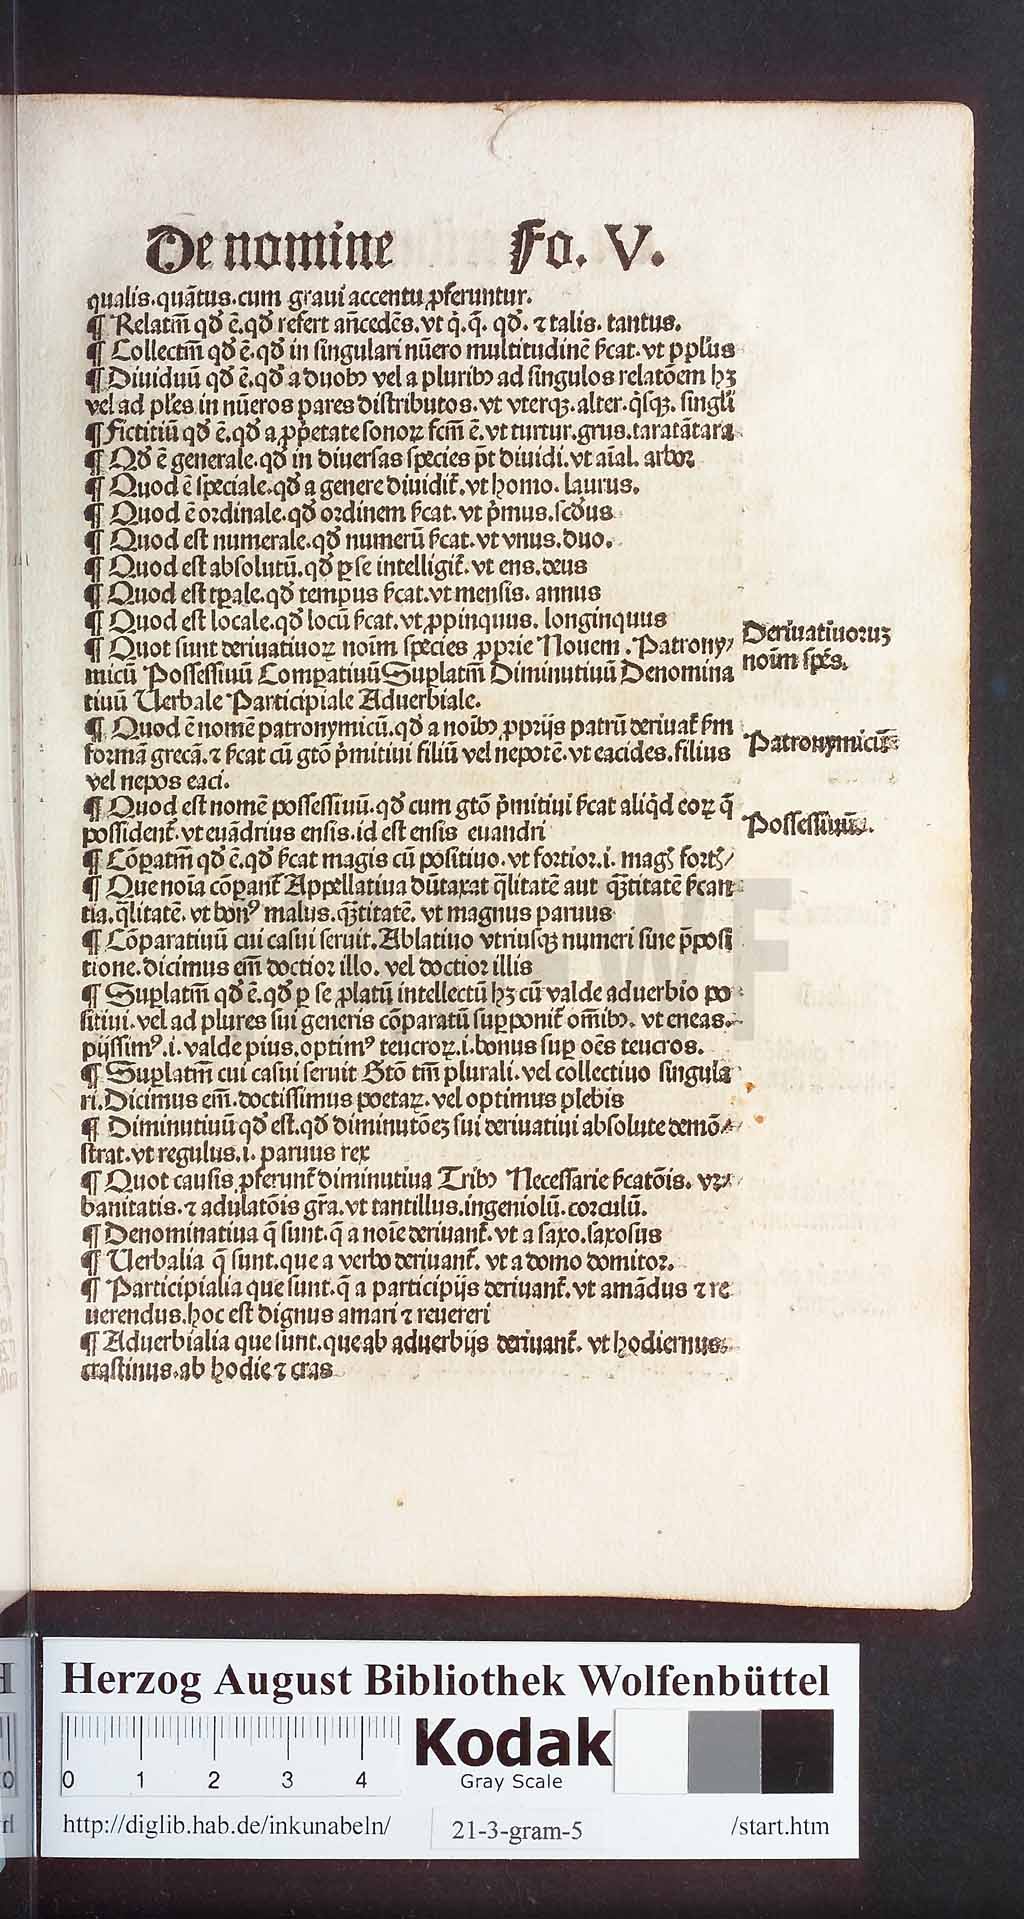 De nomine Fo. V.
qualis.quãtus.cum graui accentu ꝓferuntur.
¶ Relatiũ qḋ ẽ.qḋ refert añcedẽs.vt q̇.q̃. qḋ. ⁊ talis. tantus.
¶ Collectiũ qḋ ẽ.qḋ in singulari nũero multitudinẽ ẜcat.vt ppl̃us
¶ Diuiduũ qḋ ẽ.qḋ a duobꝯ vel a pluribꝯ ad singulos relatõem hꝫ
vel ad pl̃es in nũeros pares distributos.vt vterqꝫ.alter.q̇sqꝫ. singl̃i
¶ Fictitiũ qḋ ẽ.qḋ a ꝓp̃etate sonoꝝ fcm̃ ẽ.vt turtur.grus.taratãtara
¶ Qḋ ẽ generale.qḋ in diuersas species p̃t diuidi.vt aĩal. arbor
¶ Quod ẽ speciale.qḋ a genere diuidit̃.vt homo. laurus.
¶ Quod ẽ ordinale.qḋ ordinem ẜcat.vt p̃mus.scḋus
¶ Quod est numerale.qḋ numerũ ẜcat.vt vnus.duo.
¶ Quod est absolutũ.qḋ ꝑ se intelligit̃.vt ens.deus
¶ Quod est tꝑale.qḋ tempus ẜcat.vt mensis. annus
¶ Quod est locale.qḋ locũ ẜcat.vt ꝓpinquus. longinquus
¶ Quot sunt deriuatiuoꝝ noĩm species ꝓprie Nouem. Patrony/
micũ Possessiuũ Comꝑatiuũ Suꝑlatm̃ Diminutiuũ Denomina
tiuũ Uerbale Participiale Aduerbiale.
Deriuatiuorum
noĩm spẽs.
¶ Quod ẽ nomẽ patronymicũ.qḋ a noĩbꝯ ꝓprijs patrũ deriuat̃ ẜm
formã grecã.⁊ ẜcat cũ gtõ p̃mitiui filiũ vel nepotẽ.vt eacides.filius
vel nepos eaci.
Patronymicũ
¶ Quod est nomẽ possessiuũ.qḋ cum gtõ p̃mitiui ẜcat aliq̇d eoꝝ q̃
possident̃.vt euãdrius ensis.id est ensis euandri
Possessiuũ.
¶ Cõꝑatm̃ qḋ ẽ.qḋ ẜcat magis cũ positiuo.vt fortior.i. magꝭ fortꝭ/
¶ Que noĩa cõꝑant̃ Appellatiua dũtaxat q̃litatẽ aut q̃ꝫtitatẽ ẜcan
tia.q̃litatẽ. vt bonꝰ malus.q̃ꝫtitatẽ. vt magnus paruus
¶ Cõparatiuũ cui casui seruit.Ablatiuo vtriusqꝫ numeri sine p̃posi
tione.dicimus em̃ doctior illo. vel doctior illis
¶ Suꝑlatm̃ qḋ ẽ.qḋ ꝑ se ꝓlatũ intellectũ hꝫ cũ valde aduerbio po
sitiui.vel ad plures sui generis cõparatũ suꝑponit̃ om̃ibꝯ. vt eneas.
pijssimꝰ.i. valde pius.optimꝰ teucroꝝ.i.bonus suꝑ oẽs teucros.
¶ Suꝑlatm̃ cui casui seruit Gtõ tm̃ plurali.vel collectiuo singula
ri.Dicimus em̃.doctissimus poetaꝝ.vel optimus plebis
¶ Diminutiuũ qḋ est.qḋ diminutõeꝫ sui deriuatiui absolute demõ
strat.vt regulus.i. paruus rex
¶ Quot causis ꝓferunt̃ diminutiua Tribꝯ Necessarie ẜcatõis. vr
banitatis.⁊ adulatõis gr̃a.vt tantillus.ingeniolũ.corculũ.
¶ Denominatiua q̃ sunt.q̃ a noĩe deriuant̃.vt a saxo.saxosus
¶ Uerbalia q̃ sunt.que a verbo deriuant̃. vt a domo domitor.
¶ Participialia que sunt.q̃ a participijs deriuant̃.vt amãdus ⁊ re
uerendus.hoc est dignus amari ⁊ reuereri
¶ Aduerbialia que sunt.que ab aduerbijs deriuant̃. vt hodiernus.
crastinus.ab hodie ⁊ cras
Herzog August Bibliothek Wolfenbüttel
0 1 2 3 4
Kodak
Gray Scale
http://diglib.hab.de/inkunabeln/ 21-3-gram-5 /start.htm